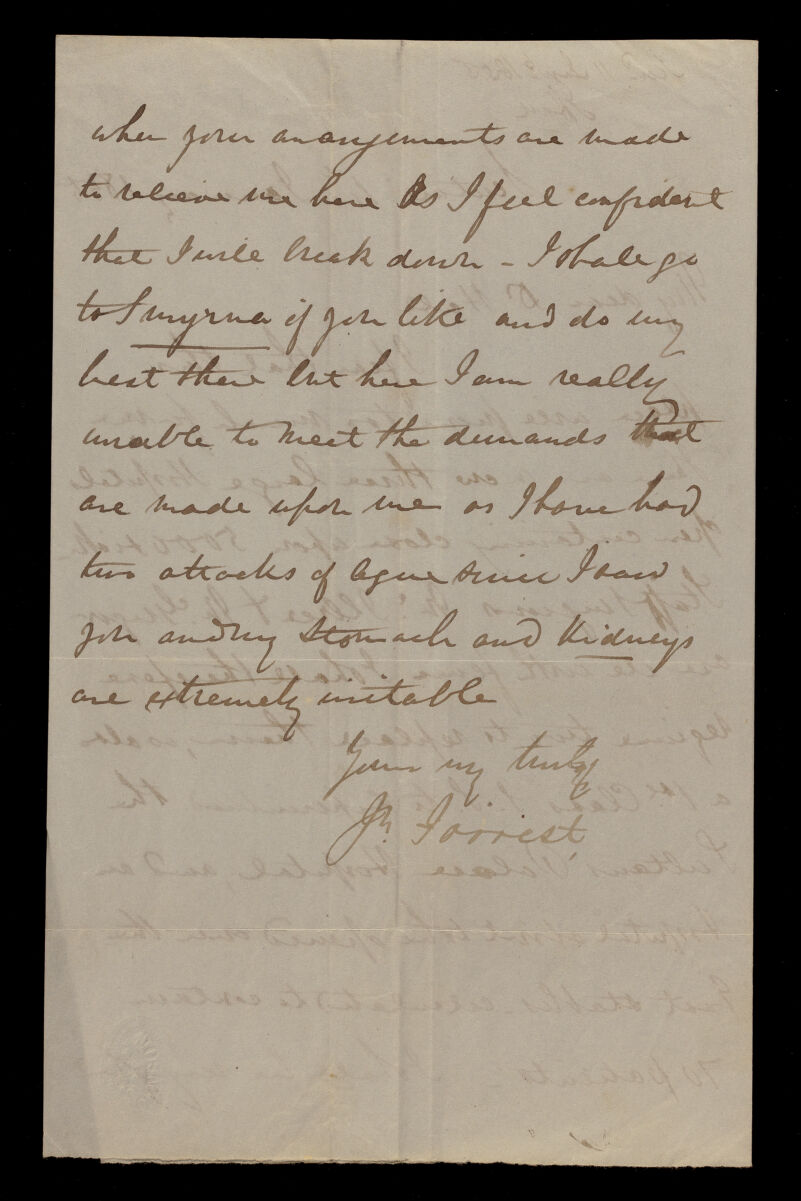 when your arrangements are made
to relieve me here As I feel confident
that I will break down - I shall go
to Smyrna if you like and do my
best there but here I am really
unable to meet the demands that
are made upon me as I have had
two attacks of Ague since I saw
you and my Stomach and Kidneys
are extremely irritable
Yours my truly
Jn. Forrest